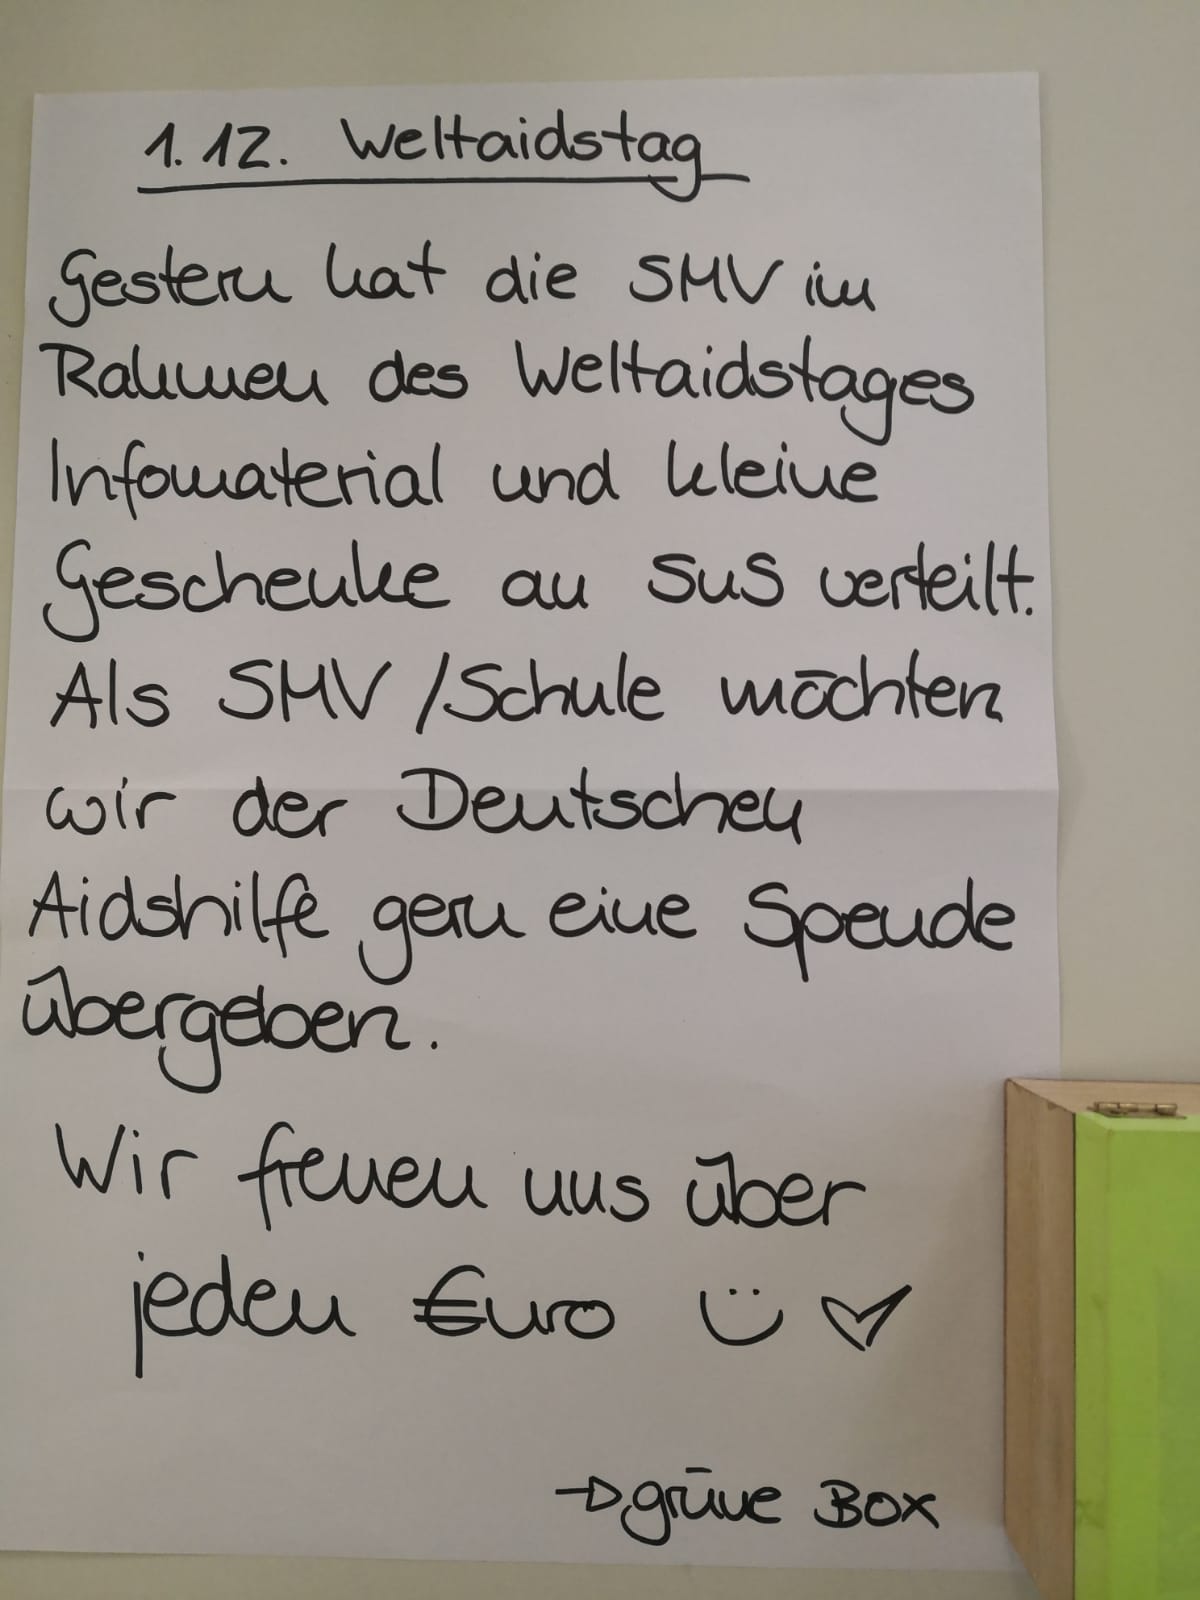 1.12. Weltaidstag
Gestern hat die SMV im
Rahmen des Weltaidstages
Infomaterial und kleine
Geschenke an SuS verteilt.
Als SMV/Schule möchten
wir der Deutschen
Aidshilfe gern eine Spende
übergeben.
Wir freuen uns über
jeden €uro ☺ ♡
→ grüne Box